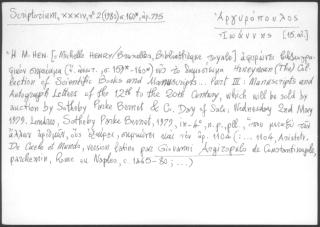 Scriptorium, XXXIV, nº 2 (1980) σ. 160*, ἀρ. 795
Ἀργυρόπουλος
Ἰωάννης [15 αἰ.]
"Η Μ. HEN. [= Michelle HENRY/Bruxelles, Bibliothèque royale] ἀφιερώνει
σημείωμα (σ. 159*-160*) στὸ δημοσίευμα Honeyman (The) Col-
lection of Scientific Books and Manuscripts... Part III: Manuscripts and
Autograph Letters of the 12th to the 20th Century, which will be sold by
auction by Sotheby Parke Bernet & C., Day of Sale, Wednesday 2nd May
1979. Londres, Sotheby Parke Bernet, 1979, in-4°, n.p., pll., ὅπου μεταξὺ τῶν
ἄλλων ἀριθμῶν, σημειώνεται καὶ τὸν ἀρ. 1104 (: ... 1104, Aristote.
De Caelo et Mundo, version latine par Giovanni Argiropulo de Constantinople,
parchemin, Rome ou Naples, c. 1465-80; ...)